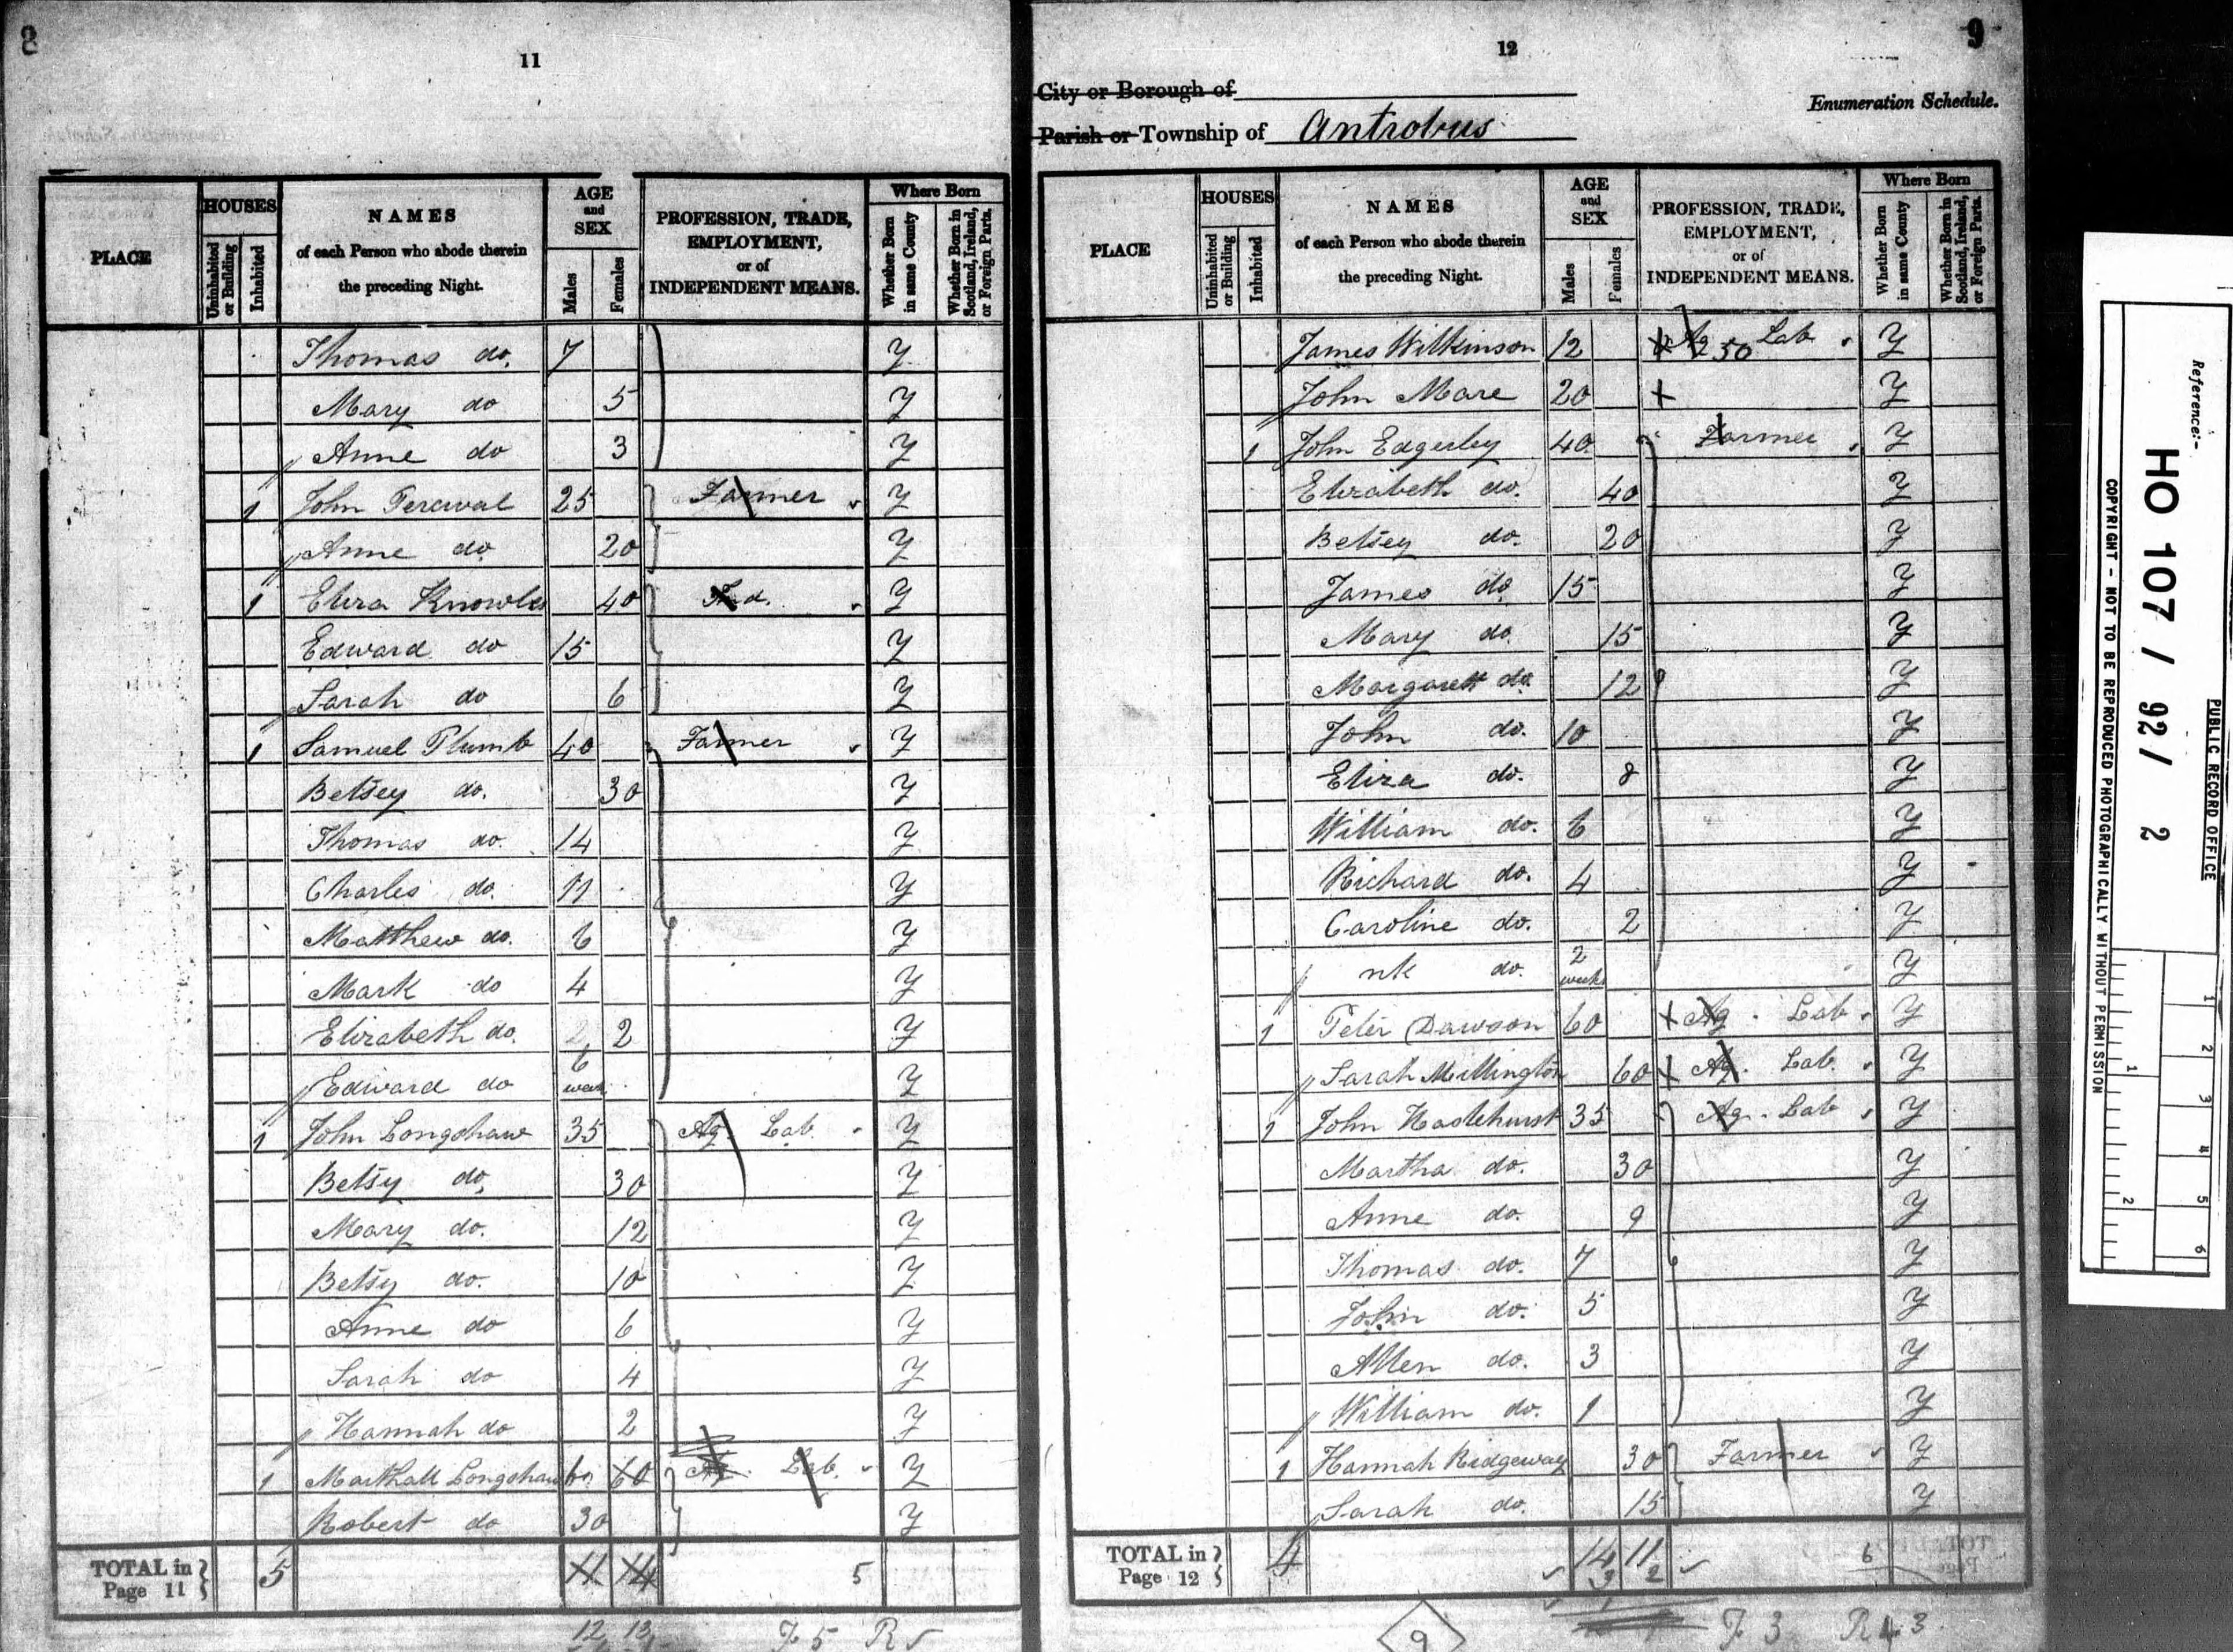 8
11
PLACE
HOUSES
Uninhabited or Building
Inhabited
NAMES
of each Person who abode therein
the preceding Night.
AGE
and
SEX
Males
Females
PROFESSION, TRADE,
EMPLOYMENT,
or of
INDEPENDENT MEANS.
Where Born
Whether Born in same County
Whether Born in Scotland, Ireland, or Foreign Parts.
Thomas do. 7 Y
Mary do 5 Y
Anne do 3 Y
1 John Percival 25 Farmer Y
Anne do. 20 Y
1 Eliza Knowles 40 Y
Edward do 15 Y
Sarah do 6 Y
1 Samuel Plumb 40 Farmer Y
Betsey do. 30 Y
Thomas do. 14 Y
Charles do. 11 Y
Matthew do. 6 Y
Mark do 4 Y
Elizabeth do. 2 Y
Edward do 6 weeks Y
1 John Longshaw 35 Ag. Lab. Y
Betsy do, 30 Y
Mary do. 12 Y
Betsy do. 10 Y
Anne do 6 Y
Sarah do 4 Y
Hannah do 2 Y
1 Marthall Longshaw 60 60 Ag. Lab. Y
Robert do 30 Y
TOTAL in Page 11 5 11 14 5
12 13 F 5 R
9
12
City or Borough of
Enumeration Schedule.
Parish or Township of Antrobus
PLACE
HOUSES
Uninhabited or Building
Inhabited
NAMES
of each Person who abode therein
the preceding Night.
AGE
and
SEX
Males
Females
PROFESSION, TRADE,
EMPLOYMENT,
or of
INDEPENDENT MEANS.
Where Born
Whether Born in same County
Whether Born in Scotland, Ireland, or Foreign Parts.
James Wilkinson 12 Ag Lab Y
John Mare 20 + Y
1 John Edgerley 40 Farmer Y
Elizabeth do. 40 Y
Betsey do. 20 Y
James do. 15 Y
Mary do. 15 Y
Margarett do. 12 Y
John do. 10 Y
Eliza do. 8 Y
William do. 6 Y
Richard do. 4 Y
Caroline do. 2 Y
nk do. 2 weeks Y
1 Peter Dawson 60 + Ag. Lab. Y
Sarah Millington 60 + Ag. Lab. Y
1 John Haslehurst 35 Ag. Lab Y
Martha do. 30 Y
Anne do. 9 Y
Thomas do. 7 Y
John do. 5 Y
Allen do. 3 Y
William do. 1 Y
1 Hannah Ridgeway 30 Farmer Y
Sarah do. 15 Y
TOTAL in Page 12 4 14 11 6
3 2
9 F 3 R 4 3
Reference:-
HO 107 / 92 / 2
PUBLIC RECORD OFFICE
COPYRIGHT - NOT TO BE REPRODUCED PHOTOGRAPHICALLY WITHOUT PERMISSION
1 2 3 4 5 6
1 2